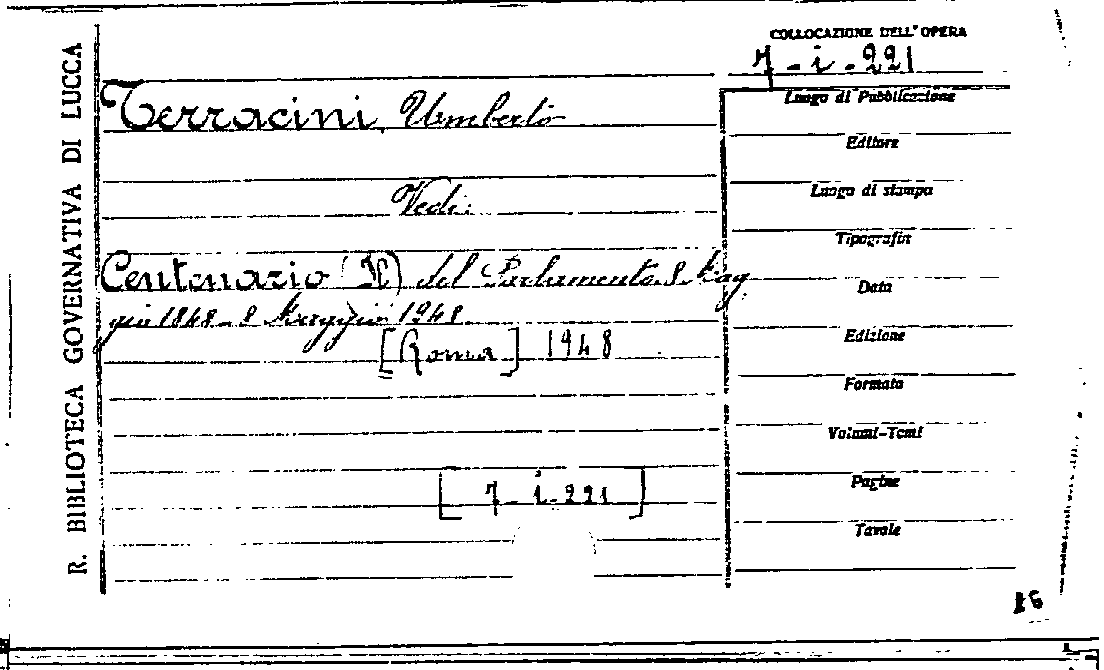 R. BIBLIOTECA GOVERNATIVA DI LUCCA
COLLOCAZIONE DELL'OPERA
7-i-221
Terracini, Umberto
Vedi:
Centenario (Il) del Parlamento. 8. Mag
gio 1848 - 8 Maggio 1948.
[Roma] 1948
[7-i-221]
Luogo di Pubblicazione
Editore
Luogo di stampa
Tipografia
Data
Edizione
Formato
Volumi-Tomi
Pagine
Tavole